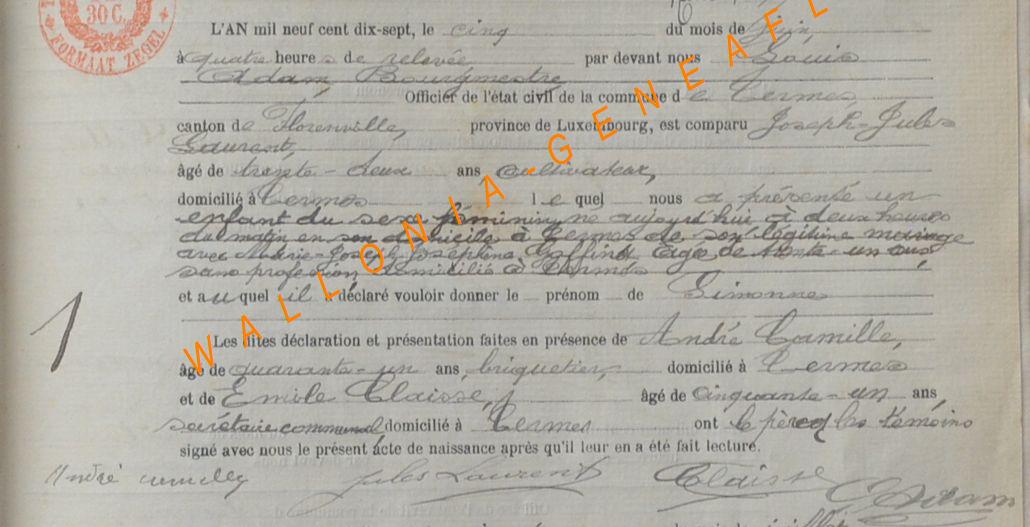 30 C.
FORMAAT ZEGEL
L'AN mil neuf cent dix-sept, le cinq du mois de Juin,
à quatre heures de relevée, par devant nous Louis
Adam, Bourgmestre
Officier de l'état civil de la commune de Termes,
canton de Florenville, province de Luxembourg, est comparu Joseph-Jules
Laurent,
âgé de trente-deux ans, cultivateur,
domicilié à Termes lequel nous a présenté un
enfant du sexe féminin, né aujourd'hui à deux heures
du matin en son domicile à Termes de son légitime mariage
avec Marie-Joseph-Joséphine Goffinet, âgée de trente-un ans,
sans profession, domiciliée à Termes
et auquel il a déclaré vouloir donner le prénom de Simonne
Les dites déclaration et présentation faites en présence de André Camille,
âgé de quarante-un ans, briquetier, domicilié à Termes
et de Emile Claisse, âgé de cinquante-un ans,
secrétaire communal domicilié à Termes ont le père et les témoins
signé avec nous le présent acte de naissance après qu'il leur en a été fait lecture.
André camille Jules Laurent Claisse Adam
1
WALLONIA-GENEAFL